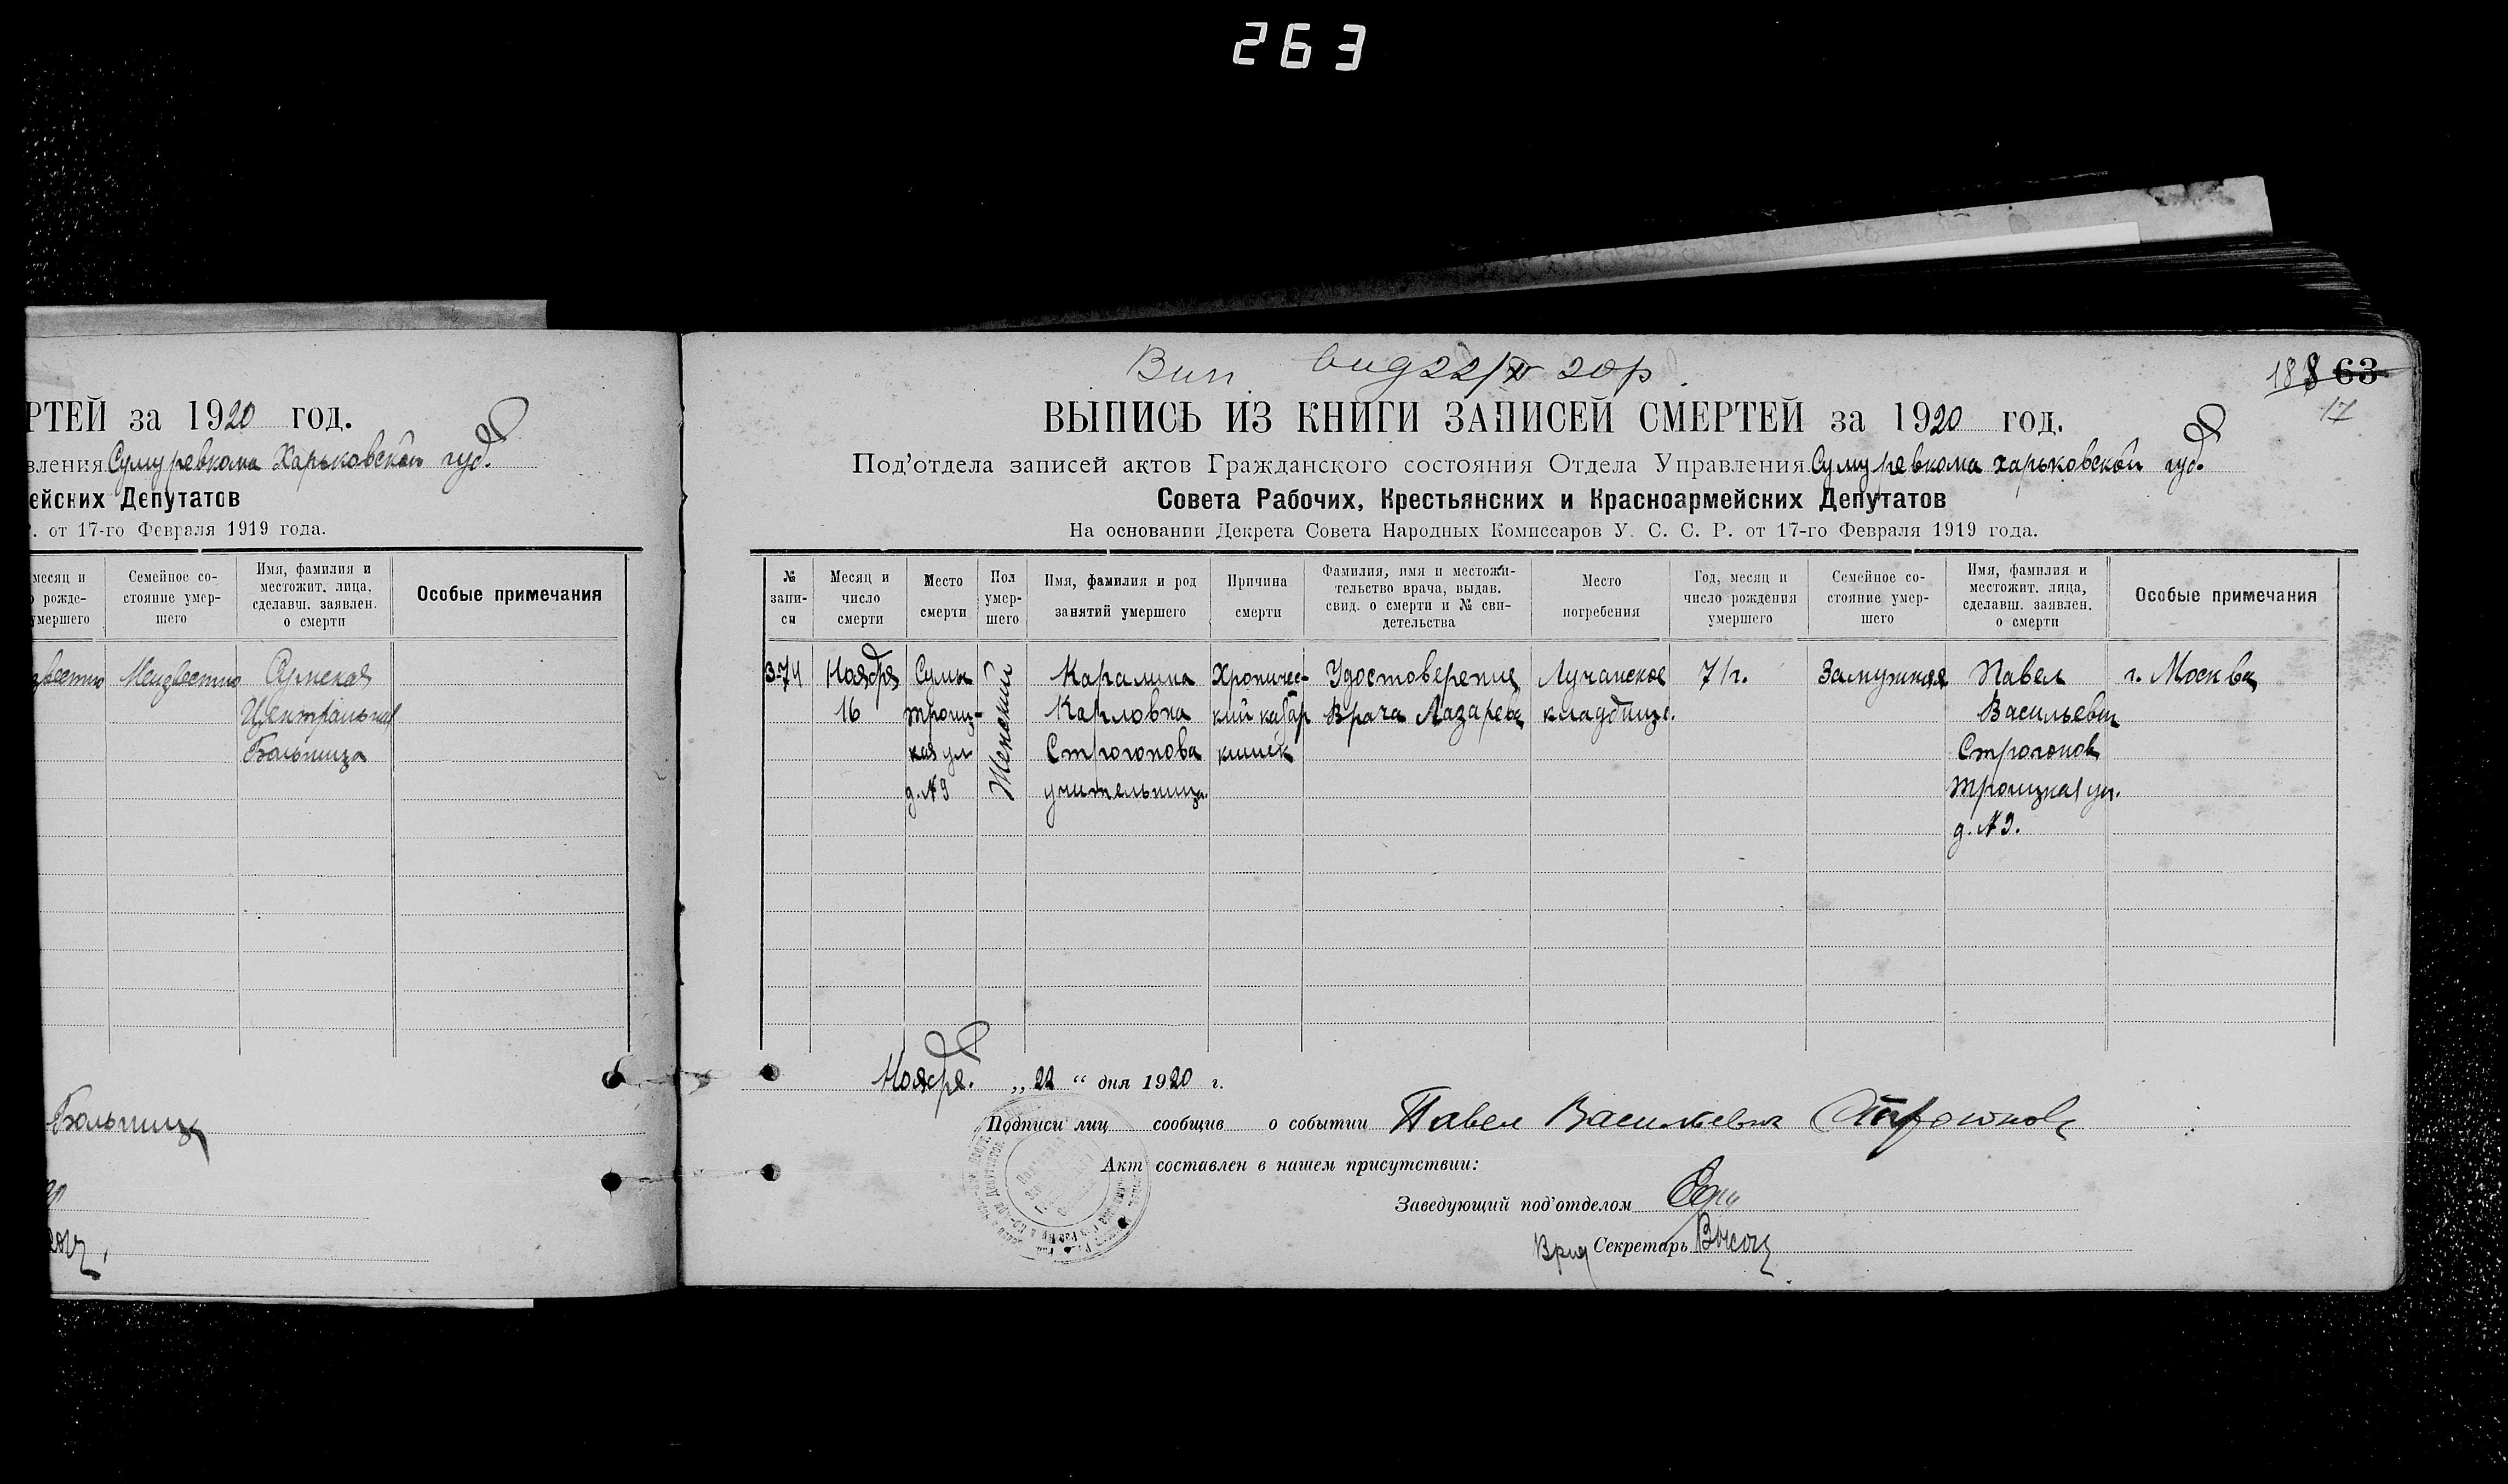 263
РТЕЙ за 1920 год.
вления Сумуревкома Харьковской губ.
ейских Депутатов
. от 17-го Февраля 1919 года.
месяц и
рожде-
умершего
Семейное со-
стояние умер-
шего
Имя, фамилия и
местожит. лица,
сделавш. заявлен.
о смерти
Особые примечания
Неизвестно
Сумская
Центральная
Больница
Больница
63
17
ВЫПИСЬ ИЗ КНИГИ ЗАПИСЕЙ СМЕРТЕЙ за 1920 год.
Под'отдела записей актов Гражданского состояния Отдела Управления Сумуревкома харьковской губ.
Совета Рабочих, Крестьянских и Красноармейских Депутатов
На основании Декрета Совета Народных Комиссаров У. С. С. Р. от 17-го Февраля 1919 года.
№
запи-
си
Месяц и
число
смерти
Место
смерти
Пол
умер-
шего
Имя, фамилия и род
занятий умершего
Причина
смерти
Фамилия, имя и местожи-
тельство врача, выдав.
свид. о смерти и № сви-
детельства
Место
погребения
Год, месяц и
число рождения
умершего
Семейное со-
стояние умер-
шего
Имя, фамилия и
местожит. лица,
сделавш. заявлен.
о смерти
Особые примечания
374
Ноября
16
Сумы
Троиц-
кая ул
д. № 9
Женский
Каралина
Карловна
Строгонова
учительница.
Хроничес-
кий катар
кишек
Удостоверение
Врача Лазарева
Лучанское
кладбище.
71г.
Замужняя
Павел
Васильевич
Строгонов
Троицкая ул.
д. № 9.
г. Москва
Ноября. „22“ дня 1920 г.
Подписи лиц сообщив о событии Павел Васильевич Строгонов
Акт составлен в нашем присутствии:
Заведующий под'отделом
Врид Секретарь